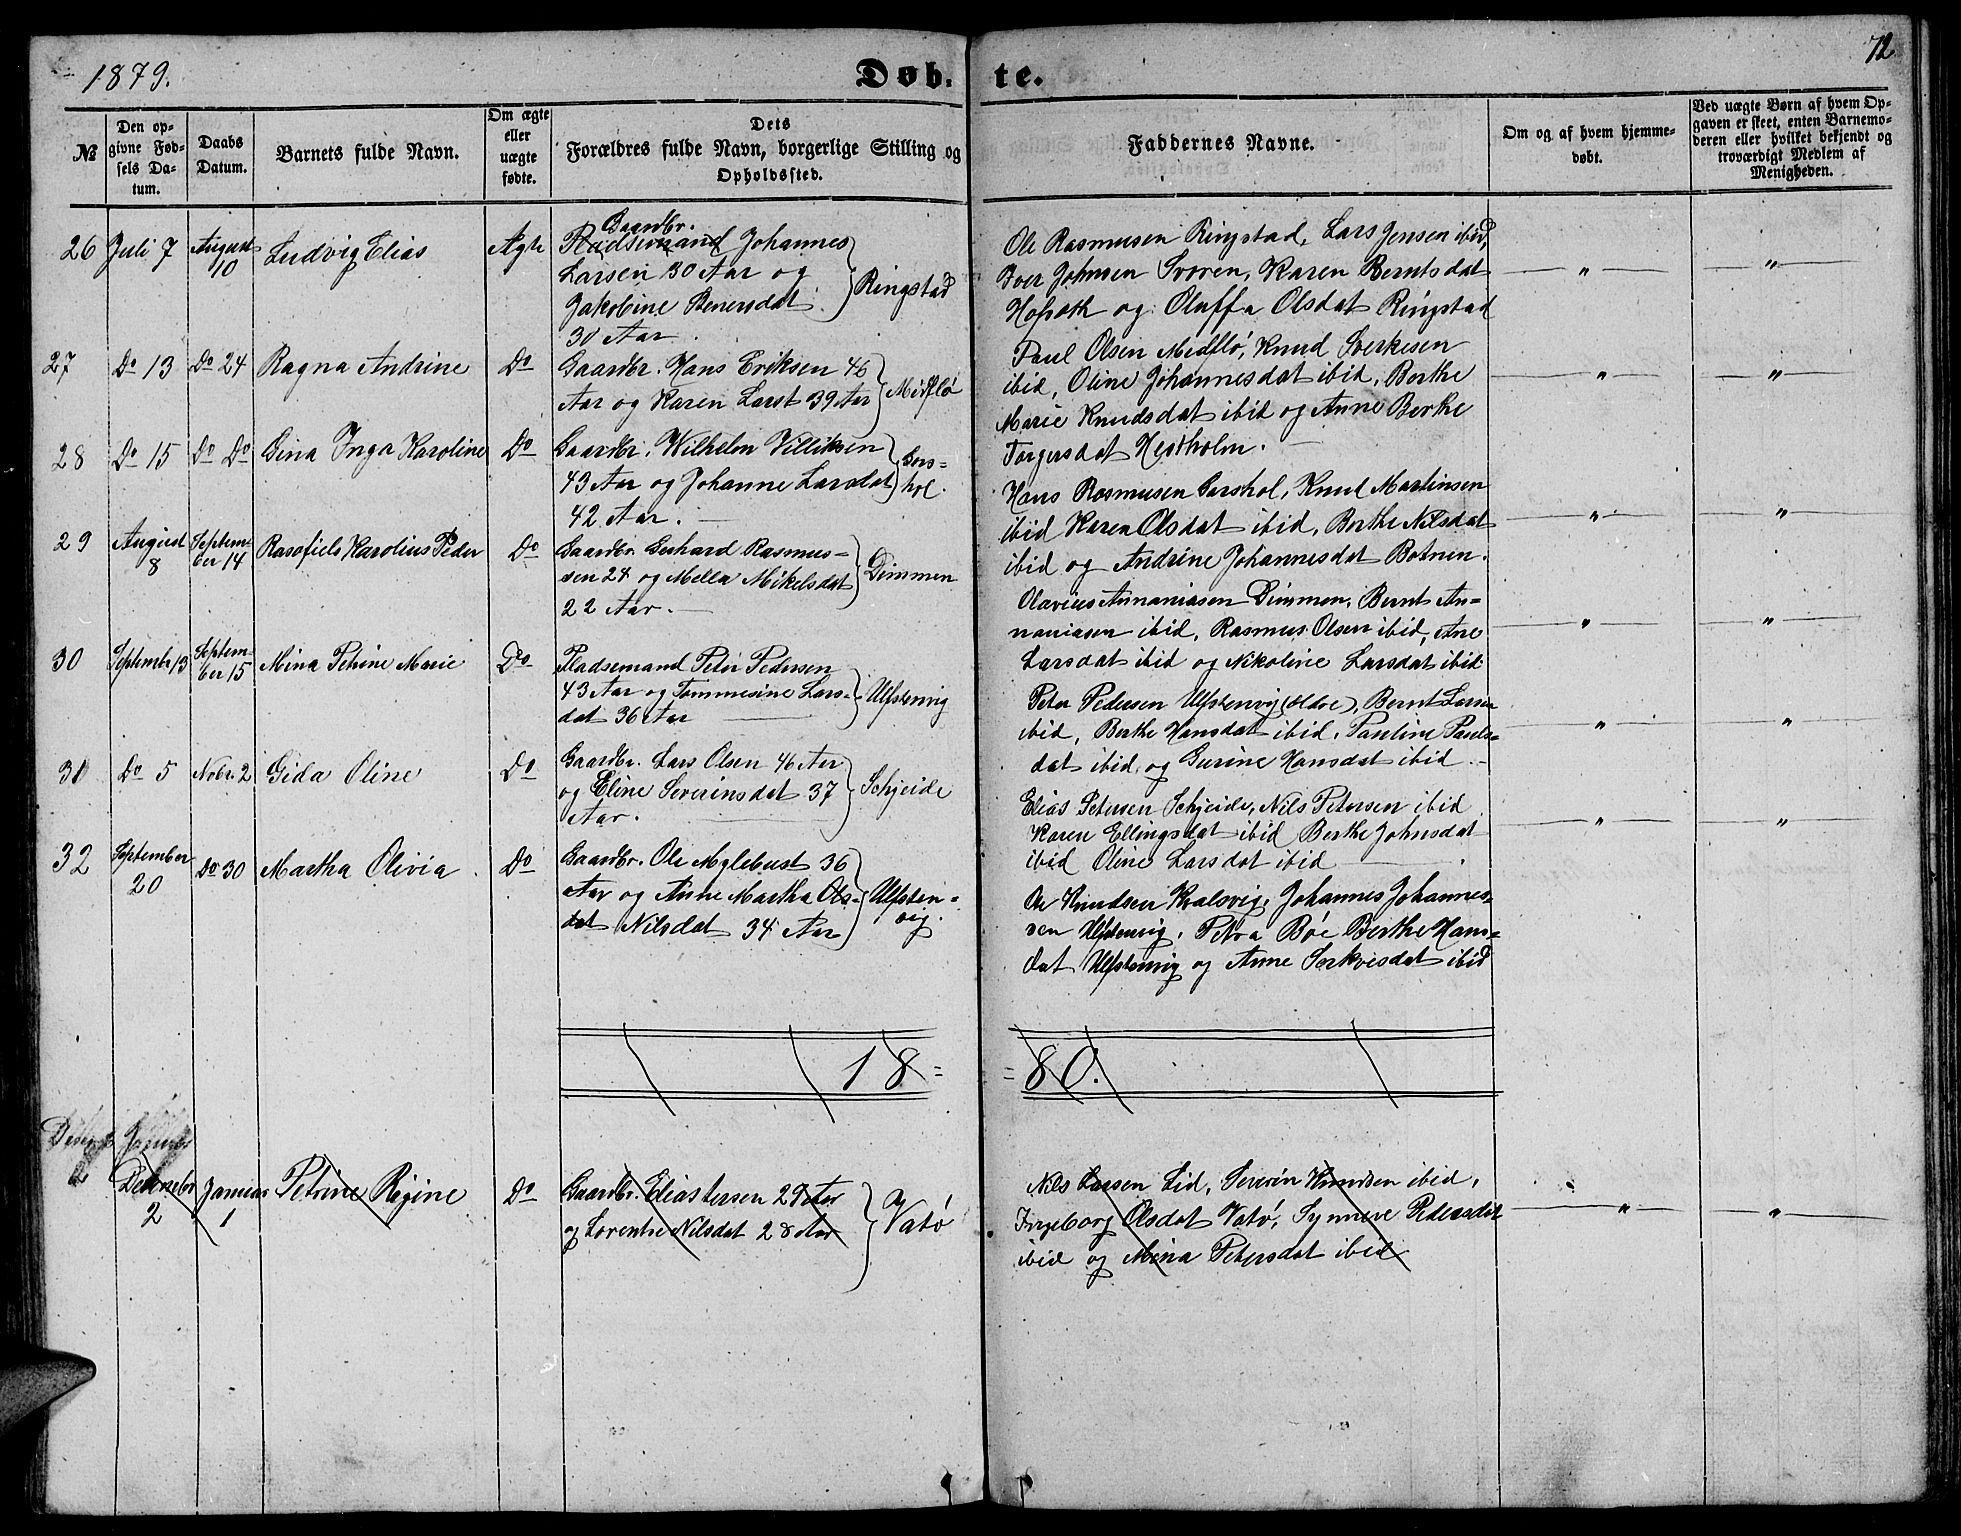 1879.
Døb-
te.
72
№
Den op-
givne Fød-
sels Da-
tum.
Daabs
Datum.
Barnets fulde Navn.
Om ægte
eller
uægte
fødte.
Dets
Forældres fulde Navn, borgerlige Stilling og
Opholdssted.
Faddernes Navne.
Om og af hvem hjemme-
døbt.
Ved uægte Børn af hvem Op-
gaven er skeet, enten Barnemo-
deren eller hvilket bekjendt og
troværdigt Medlem af
Menigheden.
26 Juli 7 August 10 Ludvig Elias Ægte
Gaardbr.
Pladsemand Johannes
Larsen 30 Aar og
Jakobine Benersdat
30 Aar
Ringstad
Ole Rasmusen Ringstad, Lars Jensen ibid,
Iver Johnsen Svoren, Karen Berntsdat
Hofseth og Oluffa Olsdat Ringstad
27 Do 13 Do 24 Ragna Andrine Do
Gaardbr. Hans Eriksen 46
Aar og Karen Larst 39 Aar
Midflø
Paul Olsen Medflø, Knud Sverkesen
ibid, Oline Johannesdat ibid, Berthe
Marie Knudsdat ibid og Anne Berthe
Torgersdat Hestholm.
28 Do 15 Do Do Gina Inga Karoline Do
Gaardbr. Wilhelm Villiksen
43 Aar og Johanne Larsdat
42 Aar.
Gars-
hol.
Hans Rasmusen Garshol, Knud Martinsen
ibid Karen Olsdat ibid, Berthe Nilsdat
ibid og Andrine Johannesdat Botnen.
29 August 8 Septem-
ber 14 Rasofiels Karolius Peder Do
Gaardbr. Gerhard Rasmus-
sen 24 og Mella Mikelsdat
22 Aar.
Dimmen
Olavius Annaniasen Dimmen, Bernt An-
naniasen ibid, Rasmus Olsen ibid, Ane
Larsdat ibid og Nikoline Larsdat ibid
30 Septembr 13 Septem-
ber 15 Mina Petrine Marie Do
Pladsemand Peter Pedersen
43 Aar og Tommesine Lars-
dat 36 Aar
Ulfstenvig
Peter Pedersen Ulfstenvig (ældre), Bernt Larsen
ibid, Berthe Hansdat ibid, Pauline Pauls-
dat ibid, og Gurine Hansdat ibid.
31 Do 5 Nobr. 2 Gida Oline Do
Gaardbr. Lars Olsen 46 Aar
og Eline Severinsdat 37
Aar.
Schjeide
Elias Petersen Schjeide, Nils Petersen ibid
Karen Ellingsdat ibid Berthe Johnsdat
ibid Oline Larsdat ibid
32 September 20 Do 30 Martha Olivia Do
Gaardbr. Ole Myklebust 36
Aar og Anne Martha Ols-
dat Nilsdat 34 Aar
Ulfsten-
vig.
Ole Knudsen Kvalsvig, Johannes Johannes-
sen Ulfstenvig, Petra Bøe Berthe Hans-
dat Ulfstenvig og Anne Serkvesdat ibid
18=
=80.
Decembr
2
Januar
1
Petrine Regine Do
Gaardbr. Elias 29 Aar
og Lorentse Nilsdat 28 Aar
Vatø
Nils Larsen Lid, Severin Knudsen ibid,
Ingeborg Olsdat Vatø, Synneve Pedersdat
ibid og Mina Petersdat ibid